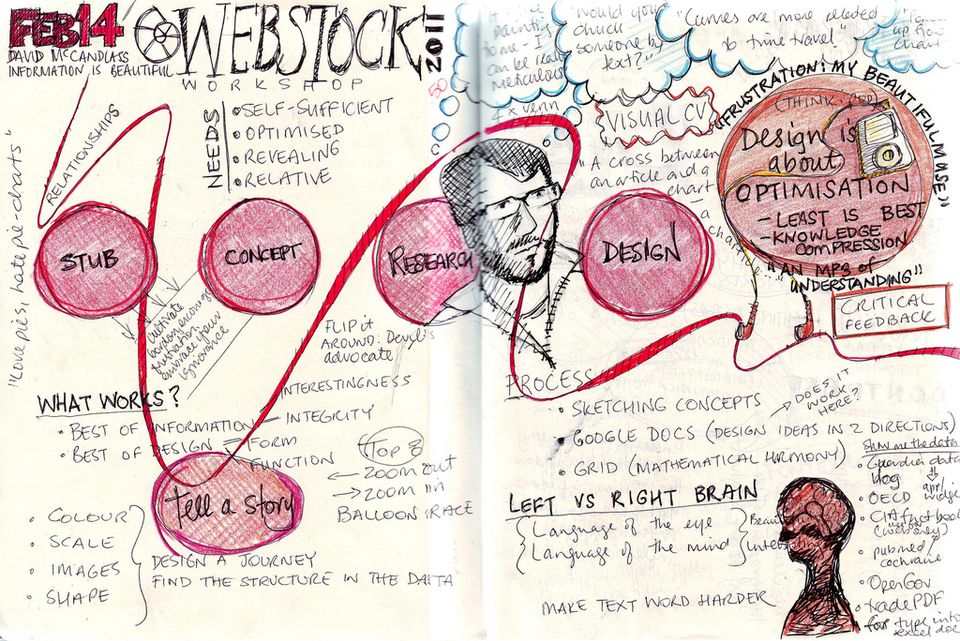 FEB 14
DAVID McCANDLASS
INFORMATION IS BEAUTIFUL
WEBSTOCK
2011
WORKSHOP
RELATIONSHIPS
NEEDS
• SELF-SUFFICIENT
• OPTIMISED
• REVEALING
• RELATIVE
"Love pies, hate pie-charts"
STUB
CONCEPT
RESEARCH
DESIGN
cultivate
frustration
embrace your
ignorance
FLIP it
AROUND: Devil's
advocate
WHAT WORKS?
• BEST OF INFORMATION
INTERESTINGNESS
INTEGRITY
• BEST OF DESIGN =
FORM
FUNCTION
TOP
← ZOOM out
→ ZOOM in
BALLOON RACE
tell a story
• COLOUR
• SCALE
• IMAGES
• SHAPE
DESIGN A JOURNEY
FIND THE STRUCTURE IN THE DATA
painting
to me - I
can be really
meticulous
"Would you
chuck
someone by
text?"
"Curves are more related
to time travel"
50
4 x venn
VISUAL CV
"A cross between
an article and a
chart -
a
"FRUSTRATION: MY BEAUTIFUL MUSE"
(THINK iPOD)
Design is
about
OPTIMISATION
- LEAST IS BEST
- KNOWLEDGE
COMPRESSION
"AN MP3 OF
UNDERSTANDING"
CRITICAL
FEEDBACK
PROCESS
• SKETCHING CONCEPTS
→ DOES IT
WORK
HERE?
• GOOGLE DOCS (DESIGN IDEAS IN 2 DIRECTIONS)
• GRID (MATHEMATICAL HARMONY)
LEFT VS RIGHT BRAIN
Language of the eye
Language of the mind
MAKE TEXT WORK HARDER
Show me the data
• Guardian data
blog
• OECD
• CIA fact book
• pubmed/
cochrane
• OpenGov
• tradePDF
for type into
excel doc